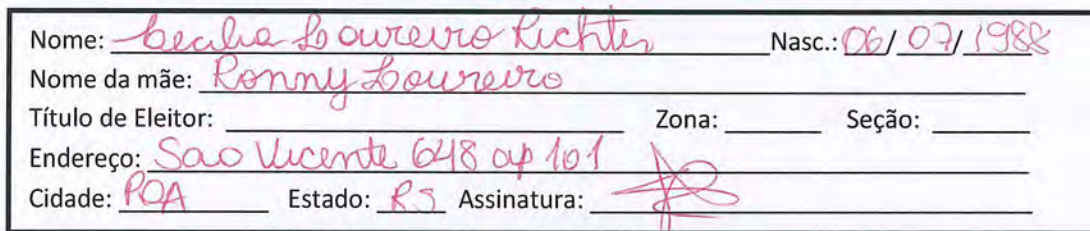 Nome: Cecilia Loureiro Richter Nasc.: 06/07/1988
Nome da mãe: Ronny Loureiro
Título de Eleitor: Zona: Seção:
Endereço: Sao Vicente 648 ap 101
Cidade: POA Estado: RS Assinatura: